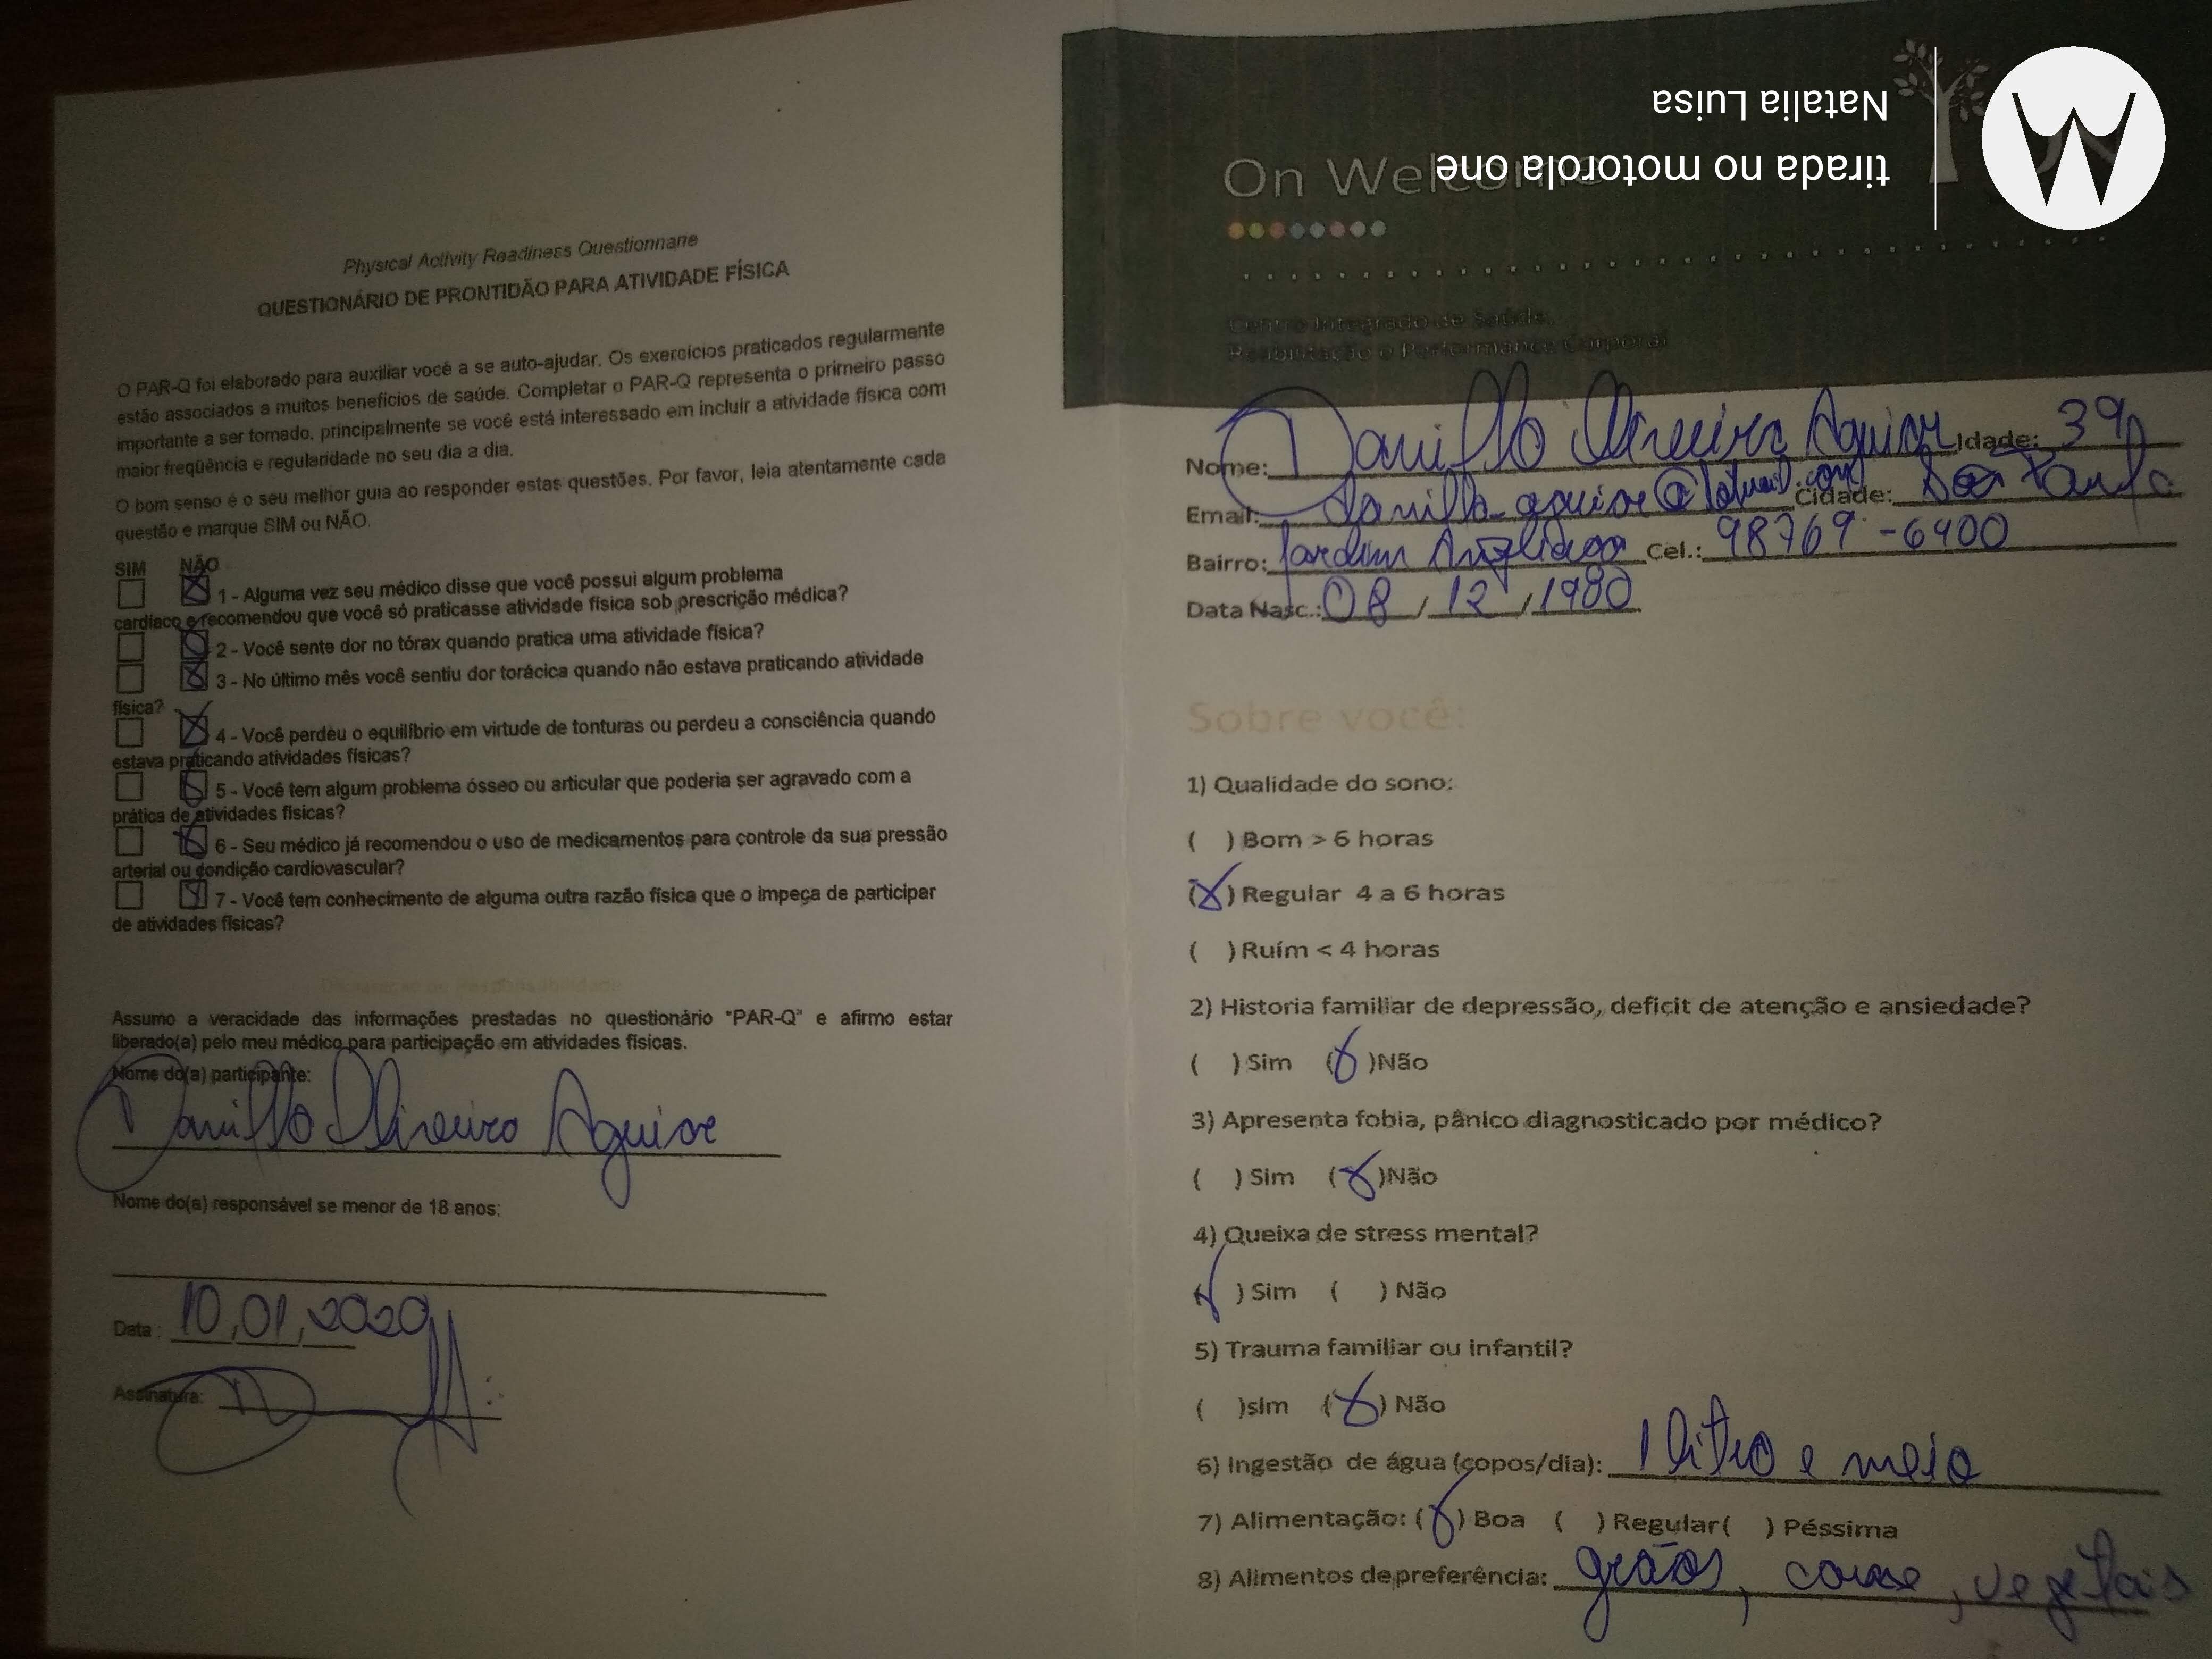 Physical Activity Readiness Questionnaire
QUESTIONÁRIO DE PRONTIDÃO PARA ATIVIDADE FÍSICA
O PAR-Q foi elaborado para auxiliar você a se auto-ajudar. Os exercícios praticados regularmente
estão associados a muitos benefícios de saúde. Completar o PAR-Q representa o primeiro passo
importante a ser tomado, principalmente se você está interessado em incluir a atividade física com
maior freqüência e regularidade no seu dia a dia.
O bom senso é o seu melhor guia ao responder estas questões. Por favor, leia atentamente cada
questão e marque SIM ou NÃO.
SIM NÃO
1 - Alguma vez seu médico disse que você possui algum problema
cardíaco e recomendou que você só praticasse atividade física sob prescrição médica?
2 - Você sente dor no tórax quando pratica uma atividade física?
3 - No último mês você sentiu dor torácica quando não estava praticando atividade
física?
4 - Você perdeu o equilíbrio em virtude de tonturas ou perdeu a consciência quando
estava praticando atividades físicas?
5 - Você tem algum problema ósseo ou articular que poderia ser agravado com a
prática de atividades físicas?
6 - Seu médico já recomendou o uso de medicamentos para controle da sua pressão
arterial ou condição cardiovascular?
7 - Você tem conhecimento de alguma outra razão física que o impeça de participar
de atividades físicas?
Declaração de Responsabilidade
Assumo a veracidade das informações prestadas no questionário "PAR-Q" e afirmo estar
liberado(a) pelo meu médico para participação em atividades físicas.
Nome do(a) participante:
Danillo Aguiar
Nome do(a) responsável se menor de 18 anos:
Data: 10,01,2020
Assinatura:
On Welcome
Centro Integrado de Saúde,
Reabilitação e Performance Corporal
Nome: Danillo Aguiar Idade: 39
Email: Cidade: São Paulo
Bairro: Jardim Cel.: 98769-6400
Data Nasc.: 08/12/1980
Sobre você:
1) Qualidade do sono:
( ) Bom > 6 horas
(X) Regular 4 a 6 horas
( ) Ruím < 4 horas
2) Historia familiar de depressão, deficit de atenção e ansiedade?
( ) Sim (X) Não
3) Apresenta fobia, pânico diagnosticado por médico?
( ) Sim (X) Não
4) Queixa de stress mental?
(X) Sim ( ) Não
5) Trauma familiar ou infantil?
( ) sim (X) Não
6) Ingestão de água (copos/dia): 1 litro e meio
7) Alimentação: (X) Boa ( ) Regular ( ) Péssima
8) Alimentos de preferência: grãos, carne, vegetais
tirada no motorola one
Natalia Luisa